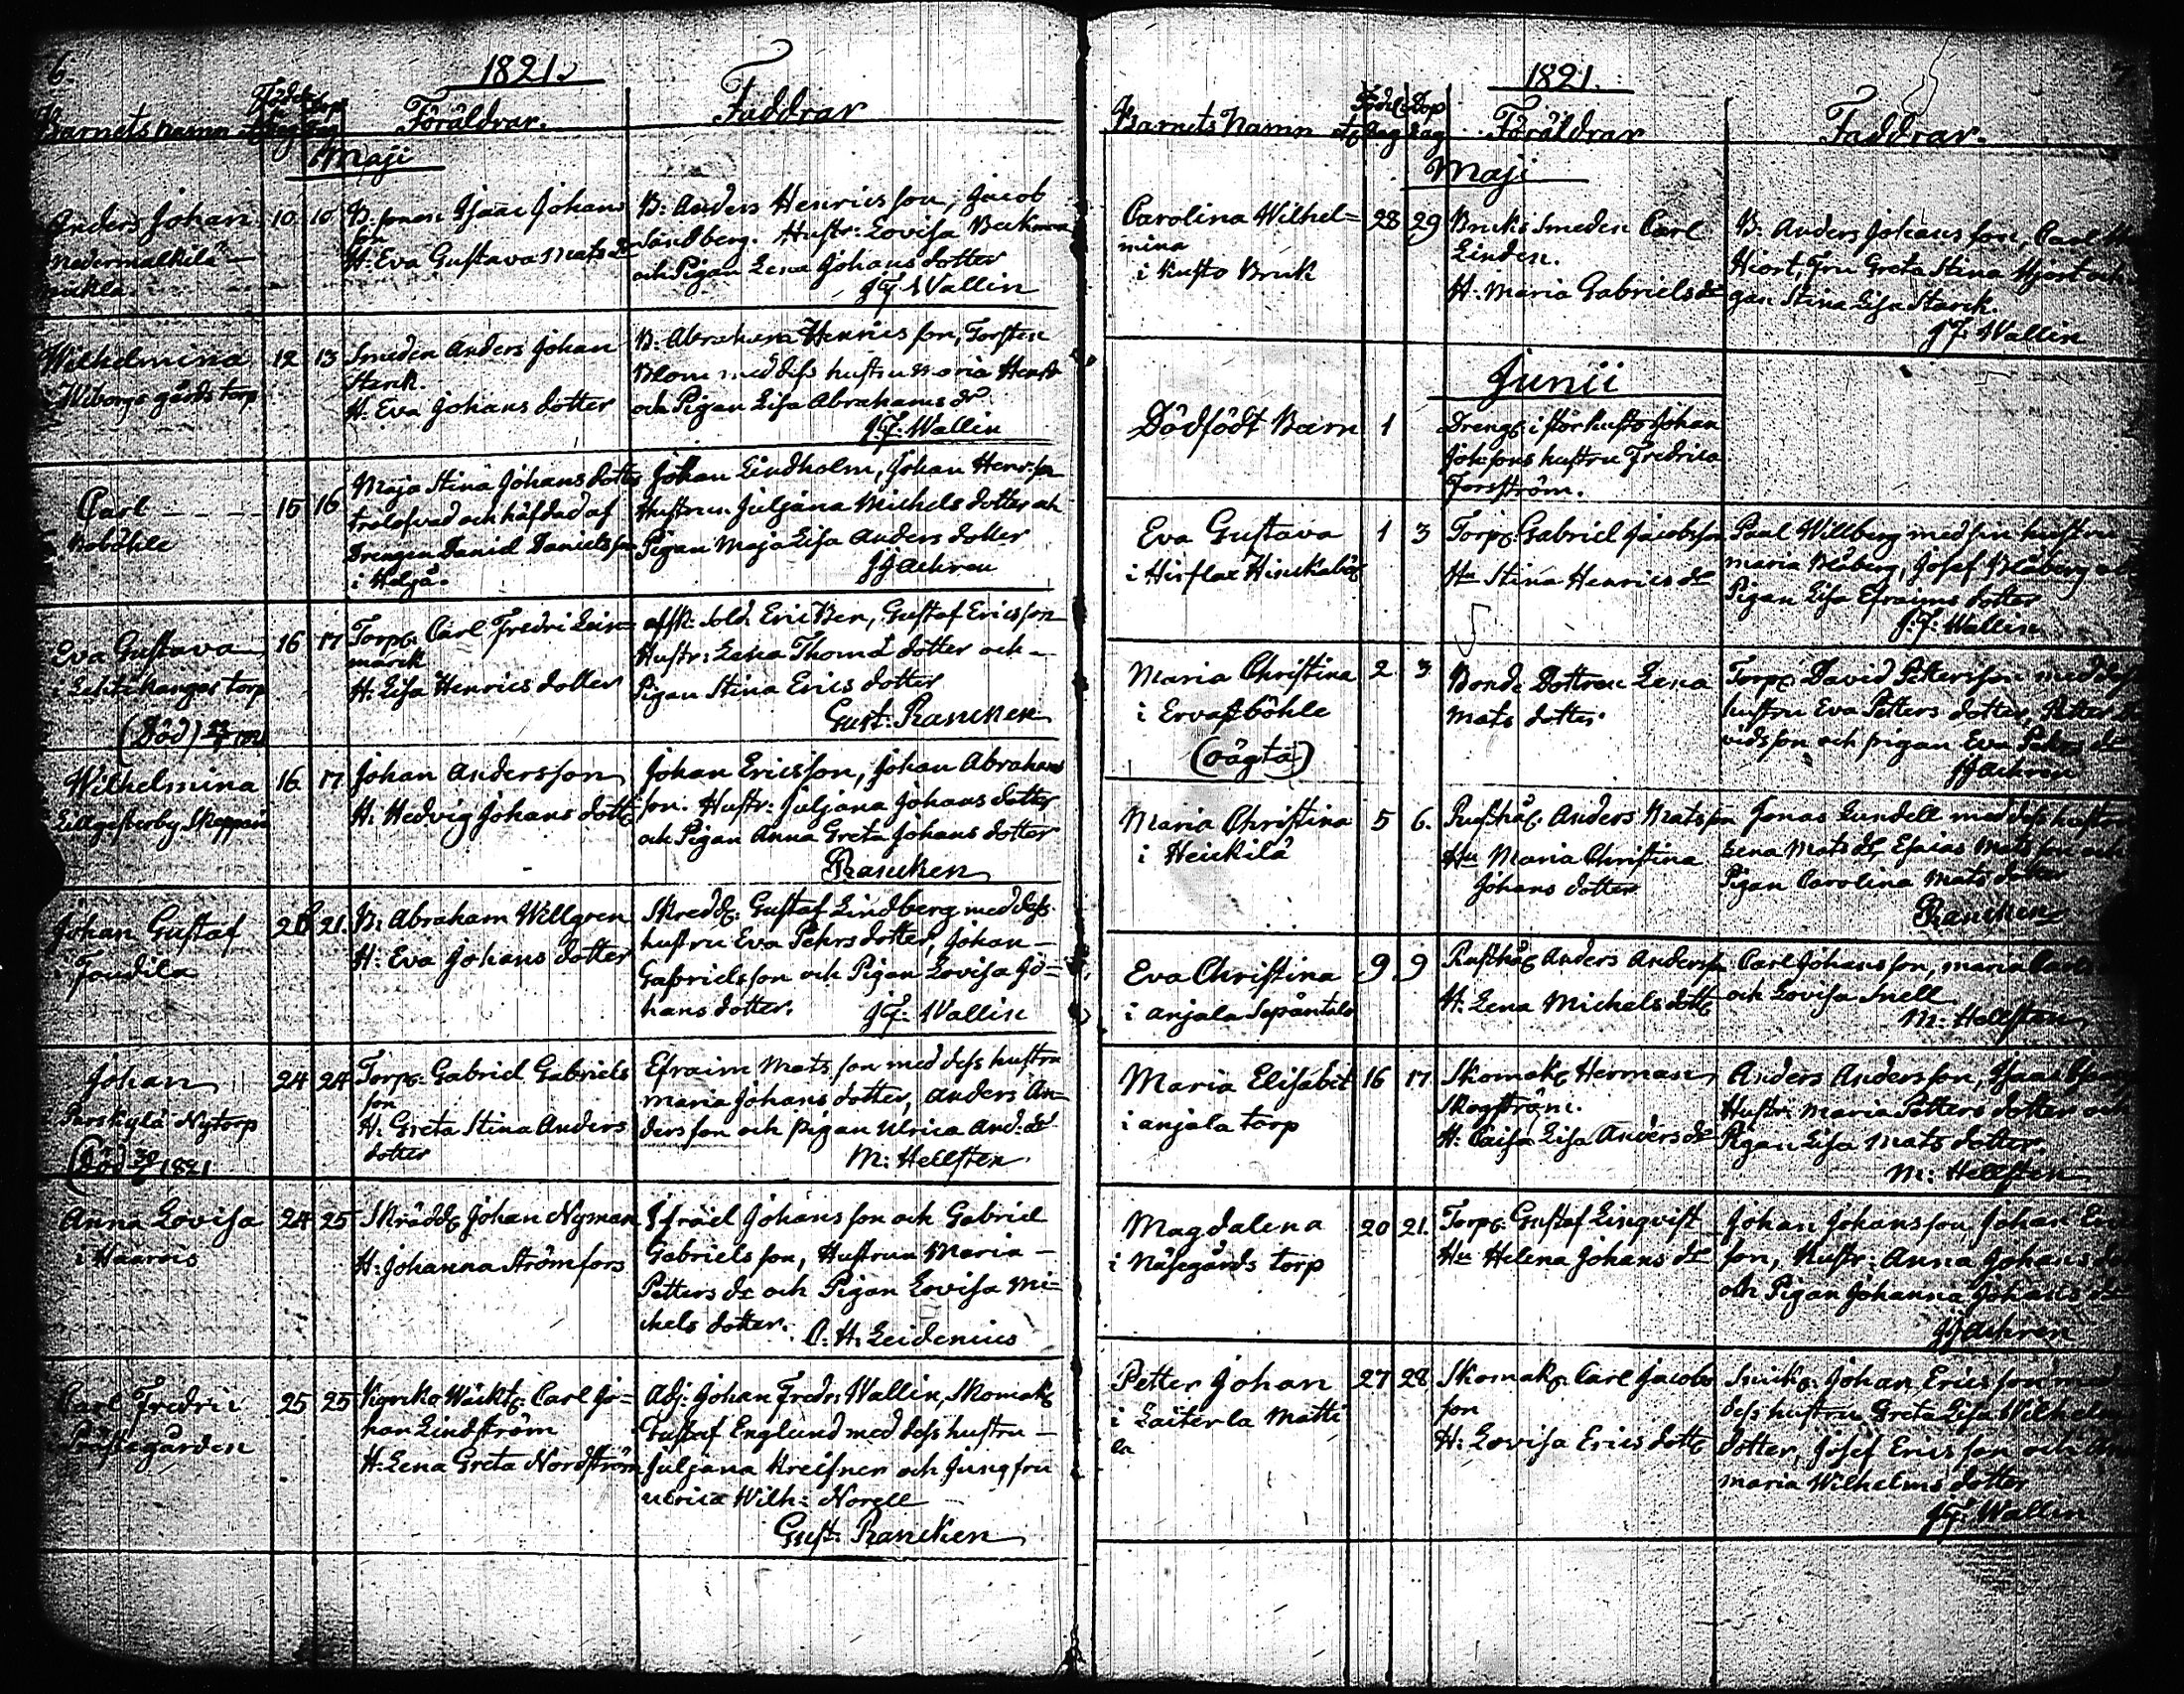 6.
1821.
Barnets namn
Födel. Dop
dag dag
Föräldrar.
Faddrar
Maji
Anders Johan
Nedermalkilä
10 10
B. sonen Isaac Johans
son
H. Eva Gustava Matsdr
B. Anders Henricsson, Jacob
Sandberg. Hustr: Lovisa Beckman
och Pigan Lena Johansdotter
J F Wallin
Wilhelmina
Wiborgs gårds torp
12 13
Smeden Anders Johan
Starck.
H. Eva Johans dotter
B. Abraham Henricsson, Torsten
Blom med dess hustru Maria Henr
och Pigan Lisa Abrahams dr
J. F. Wallin
Carl
Boböhle
15 16
Maja Stina Johans dotter
trolofvad och häfdad af
Drengen Daniel Danielsson
i Heljä.
Johan Lindholm, Johan Henr. son
Hustrun Juljana Michels dotter och
Pigan Maja Lisa Anders dotter
JJ Achren
Eva Gustava
i Lehtikangas torp
(Död)
16 17
Torp. Carl Fredric Lein=
marck
H. Lisa Henrics dotter
afsk. Sold. Eric Ber, Gustaf Ericsson
Hustr: Lena Thomæ dotter och
Pigan Stina Erics dotter
Gust: Rancken
Wilhelmina
Lillgesterby Skeppari
16 17
Johan Andersson
H. Hedvig Johans dottr
Johan Ericsson, Johan Abrahams
son. Hustr: Juljana Johans dotter
och Pigan Anna Greta Johans dotter
Rancken
Johan Gustaf
i Joudila
20 21.
B: Abraham Willgren
H: Eva Johans dotter
Skredd. Gustaf Lindberg med dess
hustru Eva Pehrs dotter, Johan
Gabrielsson och Pigan Lovisa Jo=
hans dotter. J F. Wallin
Johan
Parskylä Nytorp
(Död 30 1821
24 24
Torp. Gabriel Gabriels
son
H. Greta Stina Anders
dotter
Efraim Mats son med dess hustru
Maria Johans dotter, Anders An=
dersson och pigan Ulrica And. dr
M: Hellsten
Anna Lovisa
i Haarois
24 25
Skrädd. Johan Nyman
H: Johanna Strömfors
Israel Johansson och Gabriel
Gabrielsson, Hustrun Maria
Petters dr och Pigan Lovisa Mi=
chels dotter. C. H. Leidenius
Carl Fredric
Prästegården
25 25
Carl Jo=
han Lindström
H: Lena Greta Nordström
Adj: Johan Fredr. Wallin, Skomak
Gustaf Englund med dess hustru
Juljana Kreisner och Jungfru
Ulrica Wilh: Norell
Gust: Rancken
1821.
Barnets Namn
Födel. Dop
dag dag
Föräldrar
Faddrar.
Maji
Carolina Wilhel=
mina
i Kusto Bruk
28 29
Bruks Smeden Carl
Linden.
H. Maria Gabriels dr
B. Anders Johansson, Carl
Hiort, Fru Greta Stina Hjort och
gan Stina Lisa Starck.
J F. Wallin
Junii
Dödfödt Barn
1
Dreng. i Storkusto Johan
Johssons hustru Fredrica
Forsström.
Eva Gustava
1 3
Torp. Gabriel Jacobsson
Hu Stina Henrics dr
Paul Willberg med sin hustru
Maria Blåberg, Josef Blåberg
Pigan Lisa Efraims dotter
J: F: Wallin
Maria Christina
i Ervastböhle
(oägta)
2 3
Bonde Dottren Lena
Mats dotter
Torp. David Pettersson med dess
hustru Eva Petters dotter, Petter Da
vidsson och pigan Eva Pehrs dr
JJ Achren
Maria Christina
i Heickilä
5 6.
Rusthål. Anders Matsson
Hu Maria Christina
Johans dotter
Jonas Lundell med dess hustru
Lena Mats dr, Esaias Matsson och
Pigan Carolina Mats dotter
Rancken
Eva Christina
i Anjala Sepäntalo
9 9
Rusthål. Anders Andersson
H. Lena Michels dottr
Carl Johansson, Maria
och Lovisa Snell
M: Hellsten
Maria Elisabet
i Anjala torp
16 17
Skomak. Herman
Skogström.
H. Caisa Lisa Anders dr
Anders Andersson, Isaac
Hustr: Maria Petters dotter och
Pigan Lisa Mats dotter.
M: Hellsten
Magdalena
i Näsegårds torp
20 21.
Torp. Gustaf Linqvist
Hu Helena Johans dr
Johan Johansson, Johan Eric
son, Hustr: Anna Johans
och Pigan Johanna Johans dr
JJ Achren
Petter Johan
i Laiterla Matti
la
27 28
Skomak. Carl Jacobs
son
H: Lovisa Erics dottr
Snick. Johan Ericsson med
dess hustru Greta Lisa Wilhelms
dotter, Josef Ericsson och
Maria Wilhelms dotter
J F. Wallin